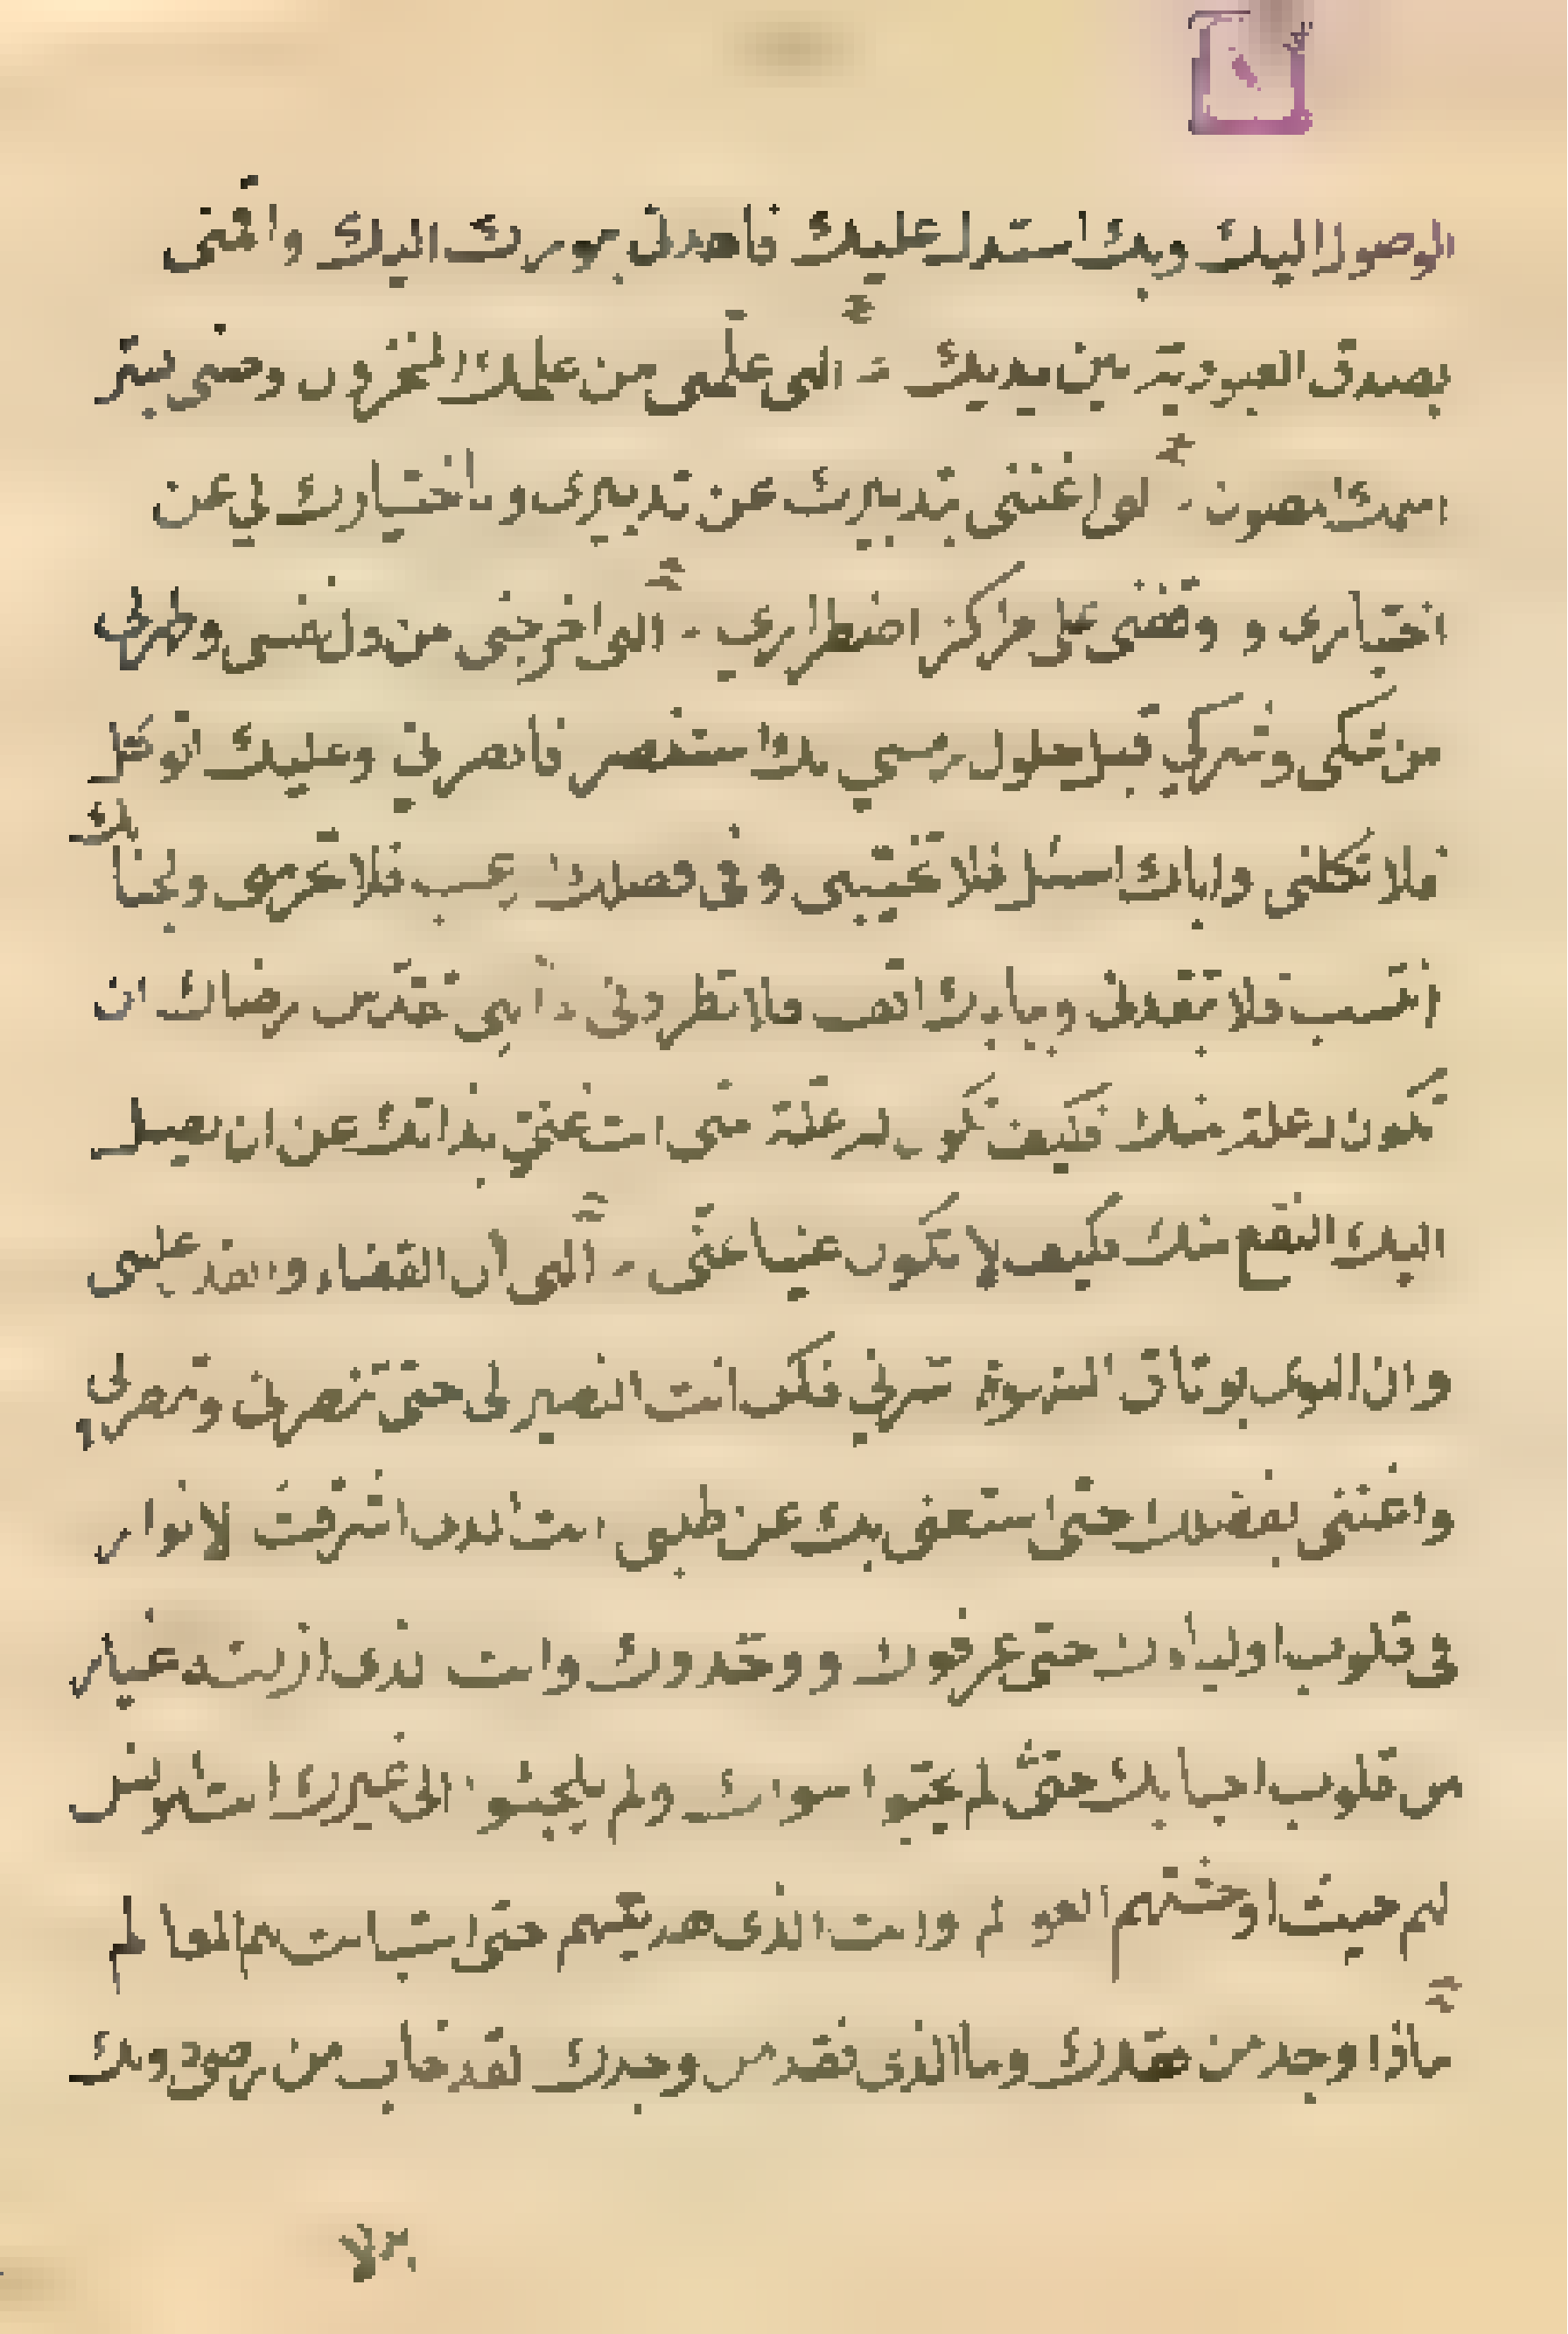 الوصول اليك وبك استدل عليك فاهدنى بنورك اليك واقمنى
بصدق العبودية بين يديك الهى علمنى من علمك المخزون وصنى بستر
اسمك المصون الهى اغننى بتدبيرك عن تدبيرى وباختيارك لي عن
اختيارى و وقفنى على مراكز اضطراري الهى اخرجنى من ذل نفسى وطهرنى
من شكى وشركي قبل حلول رمسي بك استنصر فانصرني وعليك اتوكل
فلا تكلنى واياك اسئل فلا تخيبنى وفى فضلك ارغب فلا تحرمنى وبجنابك
انتسب فلا تبعدنى وببابك اقف فلا تطردنى الهي تقدس رضاك ان
تكون له علة منك فكيف تكون له علة منى انت غني بذاتك عن ان يصل
اليك النفع منك فكيف لا تكون غنيا عنى الهى ان القضاء والقدر غلبنى
وان الهوى بوثاق الشهوة اسرني فكن انت النصير لى حتى تنصرنى وتنصر بى
واغننى بفضلك حتى استغنى بك عن طلبى انت الذى اشرقت الانوار
فى قلوب اوليائك حتى عرفوك ووحدوك وانت الذى ازلت الاغيار
من قلوب احبابك حتى لم يحبوا سواك ولم يلجئوا الى غيرك انت المونس
لهم حيث اوحشتهم العوالم وانت الذى هديتهم حتى استبانت لهم المعالم
ماذا وجد من فقدك وما الذى فقد من وجدك لقد خاب من رضى دونك
بدلا